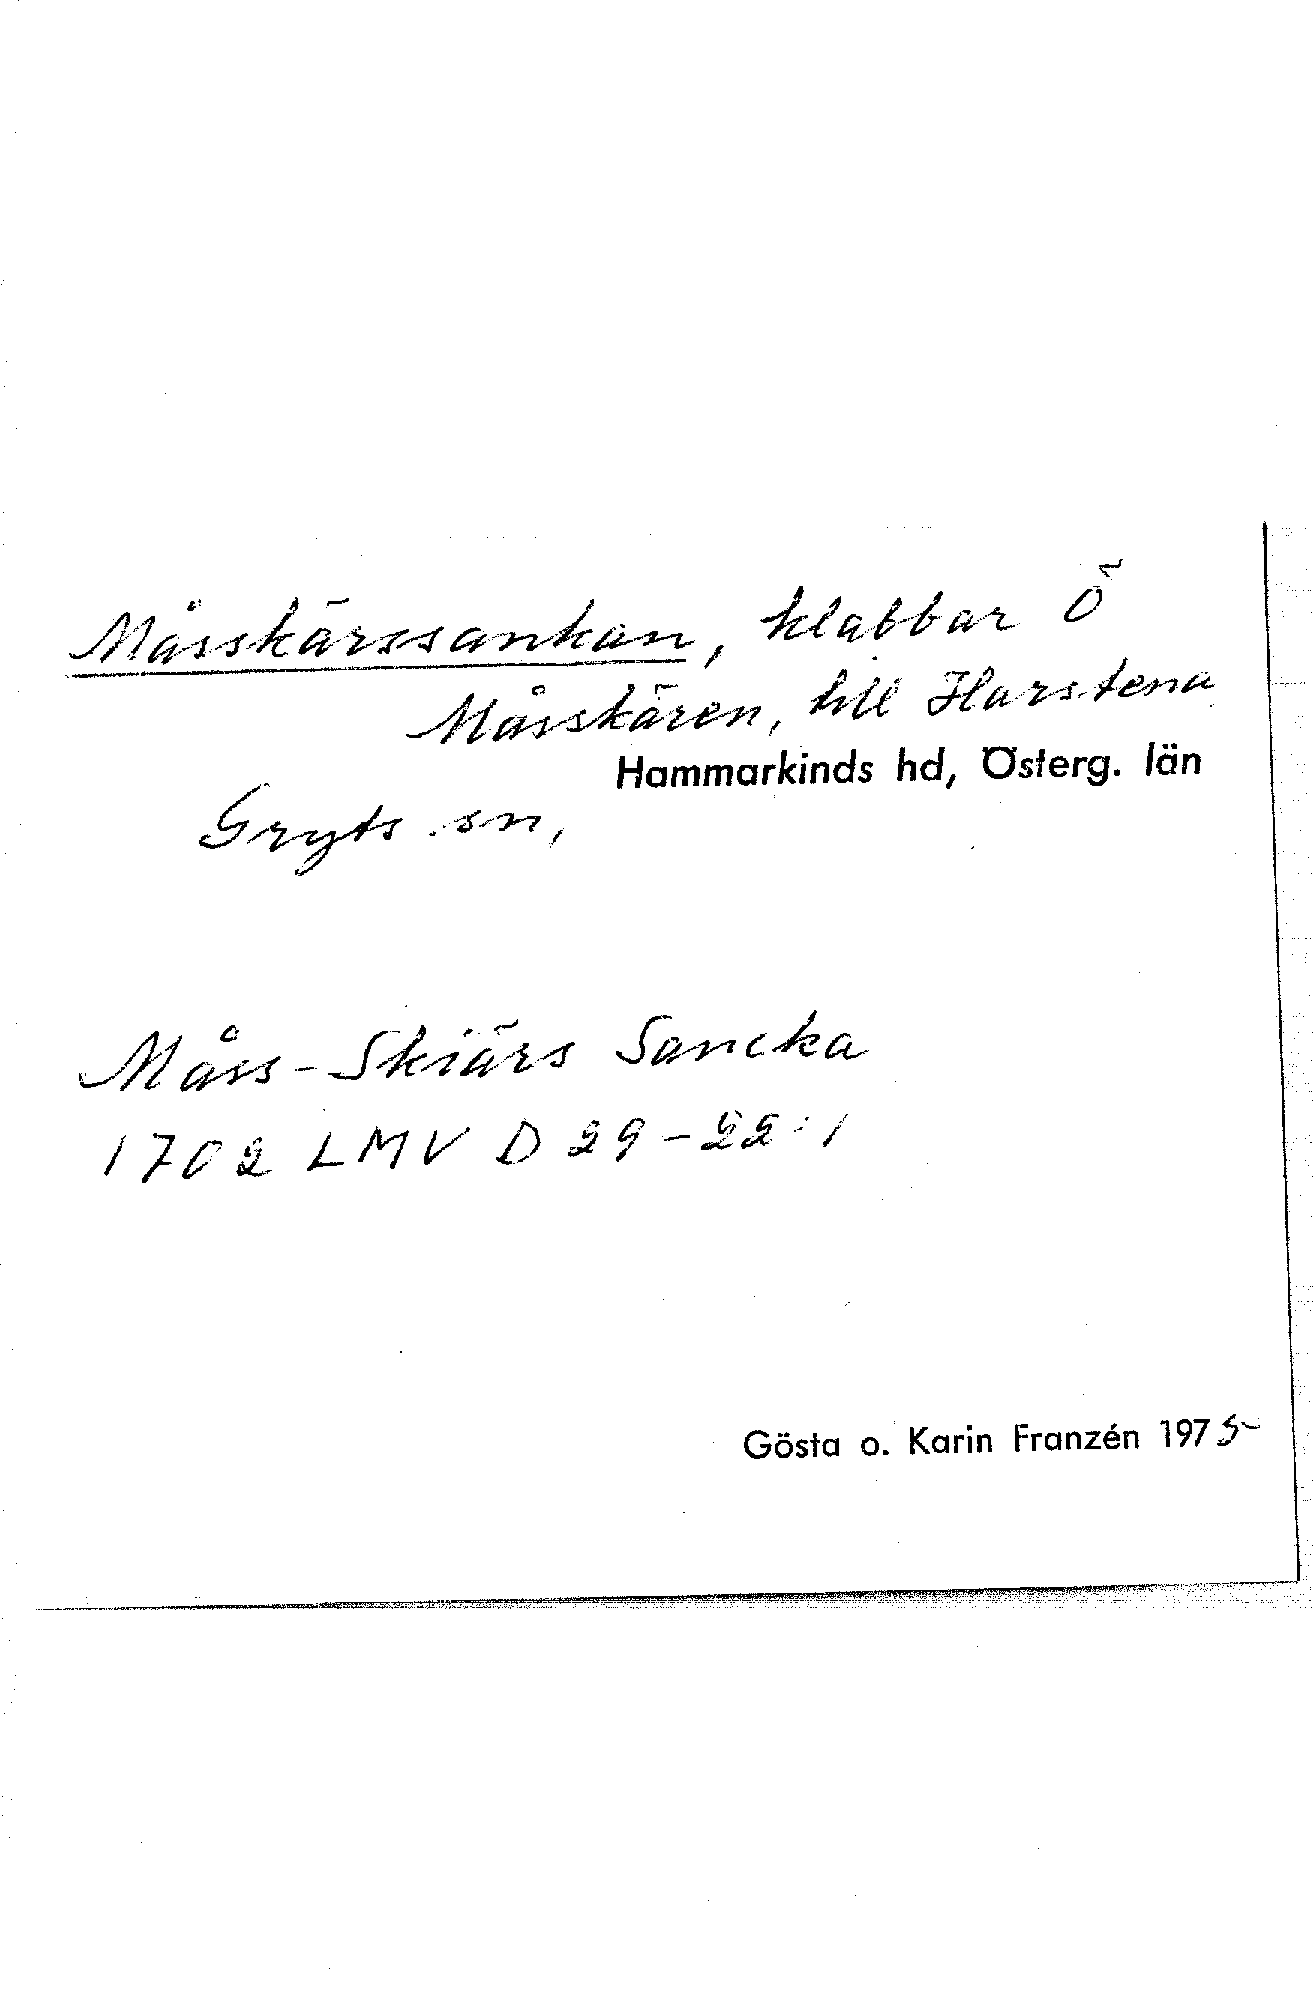 Måsskärssankan, klabbar Ö
Måsskären, till Harstena
Hammarkinds hd, Österg. län
Gryts sn,
Måss-Skiärs Sancka
1702 LMV D 29-22:1
Gösta o. Karin Franzén 1975